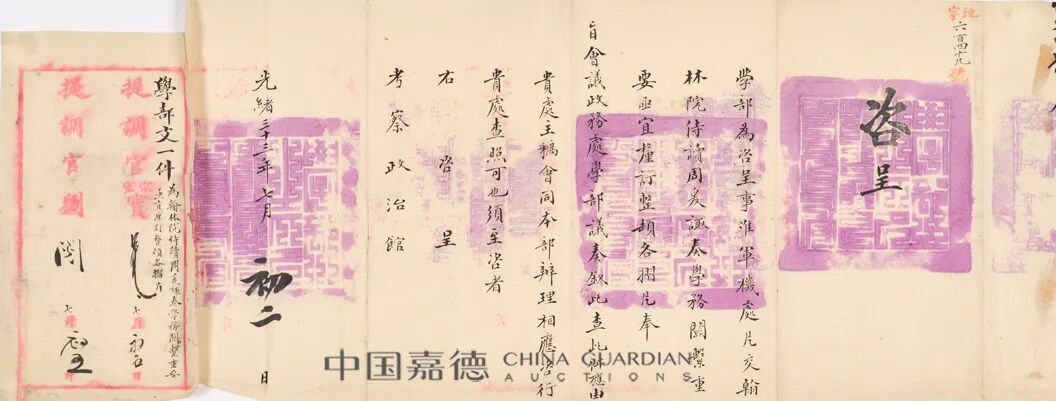 地字
六百四十九
號
咨呈
學部為咨呈事准軍機處片交翰
林院侍讀周爰諏奏學務關繫重
要亟宜釐訂整頓各摺片奉
旨會議政務處學部議奏欽此查此件應由
貴處主稿會同本部辦理相應咨行
貴處查照可也須至咨者
右咨呈
考察政治館
光緒三十三年七月初二日
學部文一件
為翰林院侍讀周爰諏奏學務關繫重要
亟宜釐訂整頓各摺片
提調官寶
七月初五日
提調官劉
閱
七月初五日
中国嘉德
CHINA GUARDIAN
AUCTIONS